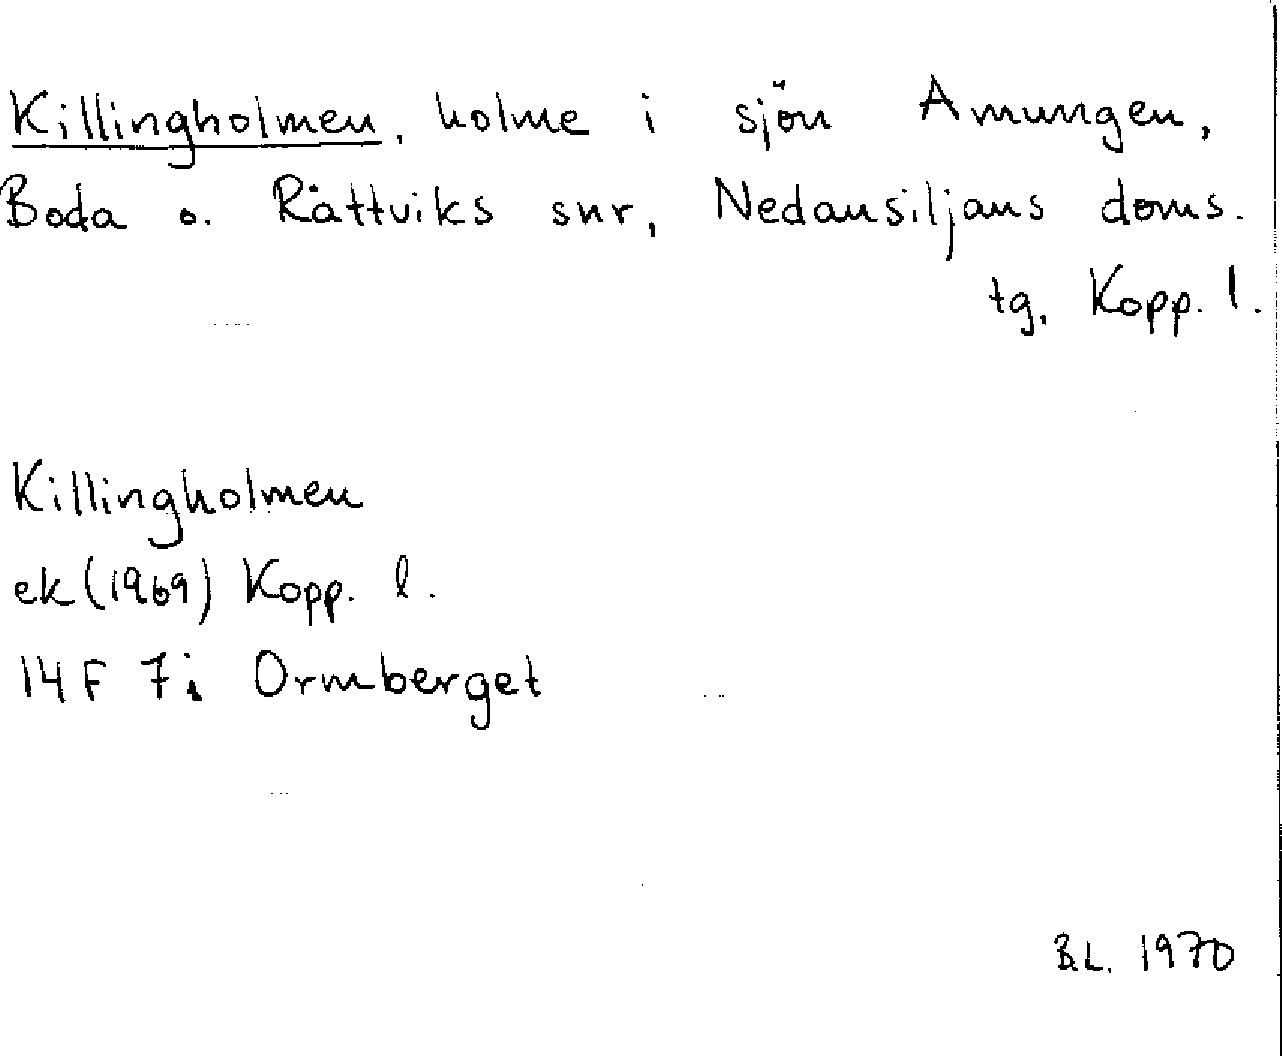 Killingholmen, holme i sjön Amungen,
Boda o. Rättviks snr, Nedansiljans doms.
tg, Kopp. l.
Killingholmen
ek (1969) Kopp. l.
14 F 7i Ormberget
B.L. 1970